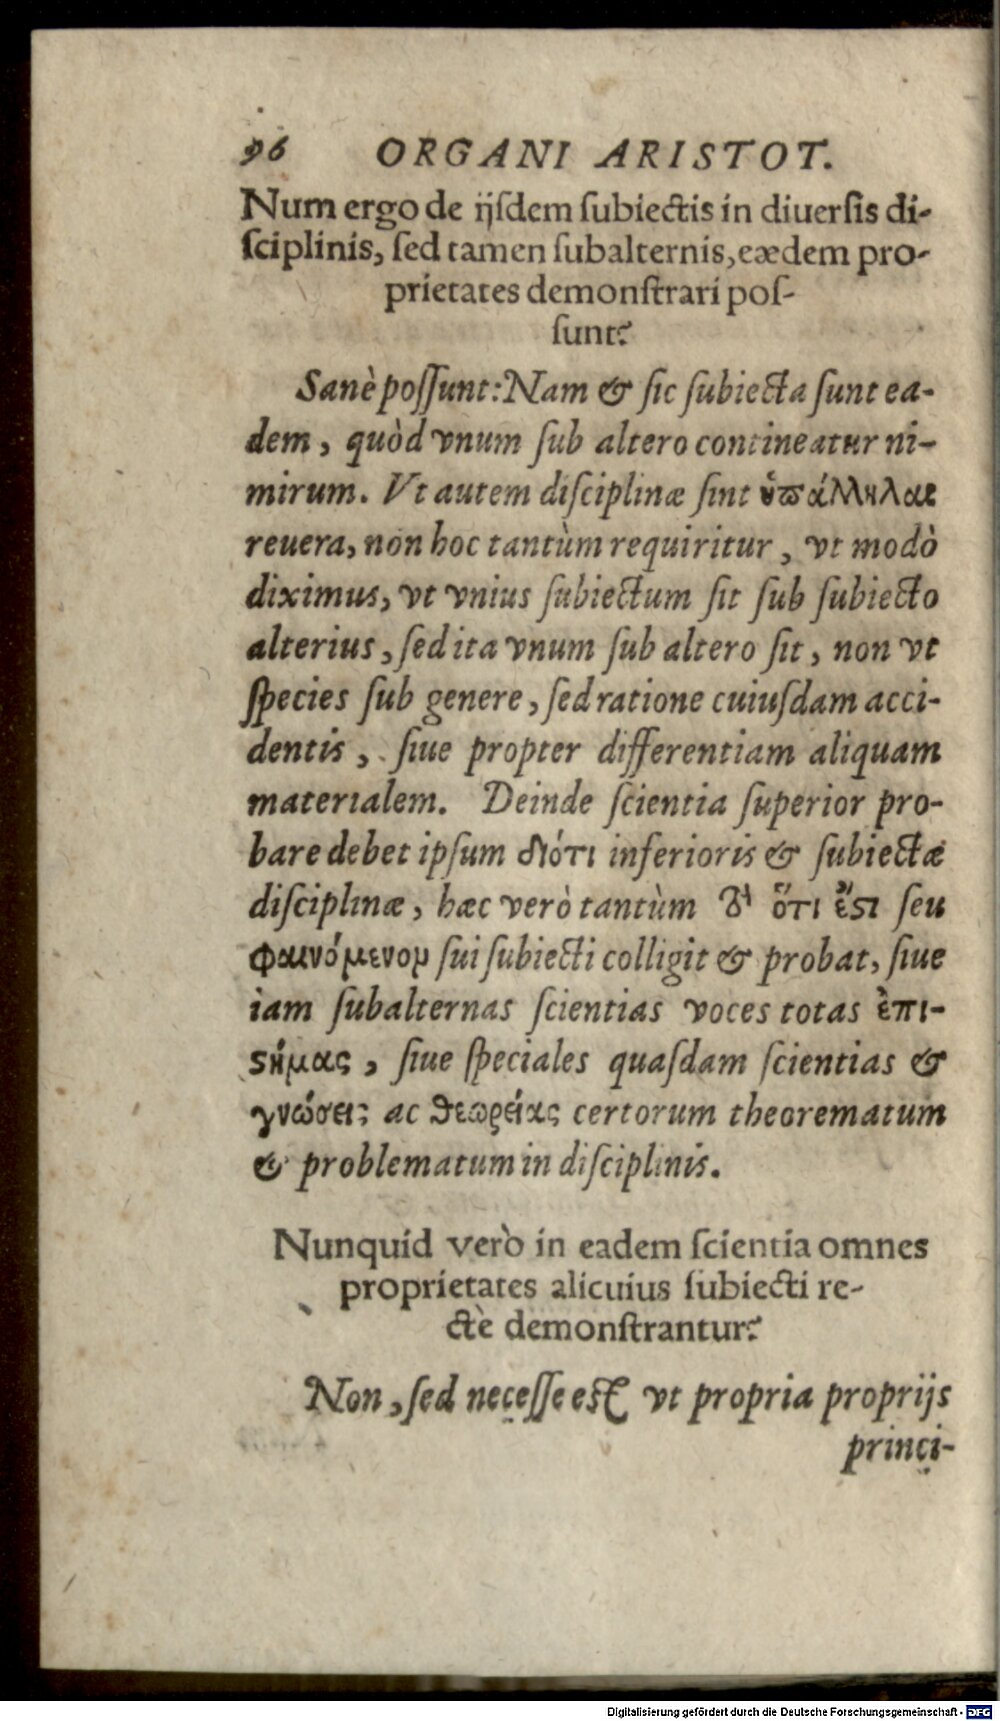 96 ORGANI ARISTOT.
Num ergo de ijſdem ſubiectis in diuerſis di-
ſciplinis, ſed tamen ſubalternis, eædem pro-
prietates demonſtrari poſ-
ſunt?
Sanè poſſunt: Nam & ſic ſubiecta ſunt ea-
dem, quòd vnum ſub altero contineatur ni-
mirum. Vt autem diſciplinæ ſint ὑπάλληλαι
reuera, non hoc tantùm requiritur, vt modò
diximus, vt vnius ſubiectum ſit ſub ſubiecto
alterius, ſed ita vnum ſub altero ſit, non vt
ſpecies ſub genere, ſed ratione cuiuſdam acci-
dentis, ſiue propter differentiam aliquam
materialem. Deinde ſcientia ſuperior pro-
bare debet ipſum διότι inferioris & ſubiectæ
diſciplinæ, hæc verò tantùm τὸ ὅτι ἔϛι ſeu
φαινόμενον ſui ſubiecti colligit & probat, ſiue
iam ſubalternas ſcientias voces totas ἐπι-
ϛήμας, ſiue ſpeciales quaſdam ſcientias &
γνώσεις ac θεωρείας certorum theorematum
& problematum in diſciplinis.
Nunquid verò in eadem ſcientia omnes
proprietates alicuius ſubiecti re-
ctè demonſtrantur?
Non, ſed neceſſe eſt vt propria proprijs
princi-
Digitalisierung gefördert durch die Deutsche Forschungsgemeinschaft - DFG